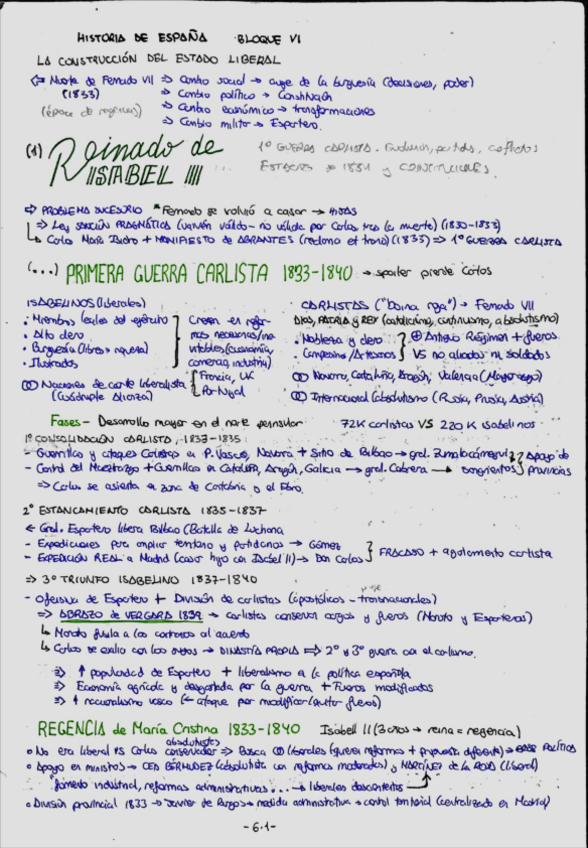 HISTORIA DE ESPAÑA BLOQUE VI
LA CONSTRUCCIÓN DEL ESTADO LIBERAL
Muerte de Fernando VII ⇒ Cambio social → auge de la burguesía (decisiones, poder)
(1833) ⇒ Cambio político → Constitución
(época de regencias) ⇒ Cambio económico → transformaciones
⇒ Cambio militar → Espartero.
(1) Reinado de ISABEL II
1º GUERRA CARLISTA. Evolución, partidos, conflictos
ESTATUTO DE 1834 y CONSTITUCIONES.
⇒ PROBLEMA SUCESORIO * Fernando se volvió a casar → HIJAS
↳ Ley SANCIÓN PRAGMÁTICA (varón válido - no válida por Carlos tras la muerte) (1830-1833)
↳ Carlos María Isidro + MANIFIESTO de ABRANTES (reclama el trono) (1833) ⇒ 1º GUERRA CARLISTA
(...) PRIMERA GUERRA CARLISTA 1833-1840 → spoiler pierde Carlos
ISABELINOS (liberales)
• Miembros leales del ejército
• Alto clero
• Burguesía (libros + nueva)
• Ilustrados
Creen en refor-
mas necesarias/ine-
vitables (economía,
comercio, industria)
Naciones de corte liberalista (Cuádruple Alianza) { Francia, UK
Portugal
CARLISTAS ("Boina roja") → Fernando VII
DIOS, PATRIA y REY (catolicismo, continuismo, absolutismo)
• Nobleza y clero
• Campesinos/Artesanos
⊕ Antiguo Régimen + fueros
VS no aliados ni soldados
Navarra, Cataluña, Aragón, Valencia (Maestrazgo)
Internacional absolutismo (Rusia, Prusia, Austria)
Fases - Desarrollo mayor en el norte peninsular 72K carlistas VS 220K isabelinos
1º CONSOLIDACIÓN CARLISTA, 1833-1835
- Guerrillas y ataques Carlistas en P. Vasco, Navarra + Sitio de Bilbao → gral. Zumalacárregui
- Control del Maestrazgo + Guerrillas en Cataluña, Aragón, Galicia → gral. Cabrera → sangrientos
} Apoyo de provincias
⇒ Carlos se asienta en zona de Cantabria y el Ebro.
2º ESTANCAMIENTO CARLISTA 1835-1837
← Gral. Espartero libera Bilbao (Batalla de Luchana
- Expediciones para ampliar territorio y partidarios → Gómez
- EXPEDICIÓN REAL a Madrid (casar hijo con Isabel II) → Don Carlos
} FRACASO + agotamiento carlista
⇒ 3º TRIUNFO ISABELINO 1837-1840
- Ofensiva de Espartero + División de carlistas (apostólicos - transaccionales)
⇒ ABRAZO de VERGARA 1839 → carlistas conservan cargos y fueros (Maroto y Espartero)
↳ Maroto fusila a los contrarios al acuerdo
↳ Carlos se exilia con los → DINASTÍA PROPIA ⇒ 2º y 3º guerra con el carlismo.
⇒ ↑ popularidad de Espartero + liberalismo a la política española
⇒ Economía agrícola y desgastada por la guerra + Fueros modificados
⇒ ↑ nacionalismo vasco (← ataque por modificar/quitar fueros)
REGENCIA de María Cristina 1833-1840 Isabel II (3 años → reina = regencia)
• No era liberal vs Carlos conservador absolutista ⇒ Busca liberales (quieren reformas + propuesta diferente) → BASE POLÍTICA
• Apoyo en ministros → CEA BERMÚDEZ (absolutista con reformas moderadas) y MARTÍNEZ de la ROSA (liberal)
fomento industrial, reformas administrativas ... → liberales descontentos
• División provincial 1833 → Javier de Burgos → medida administrativa → control territorial (centralizado en Madrid)
- 6.1 -